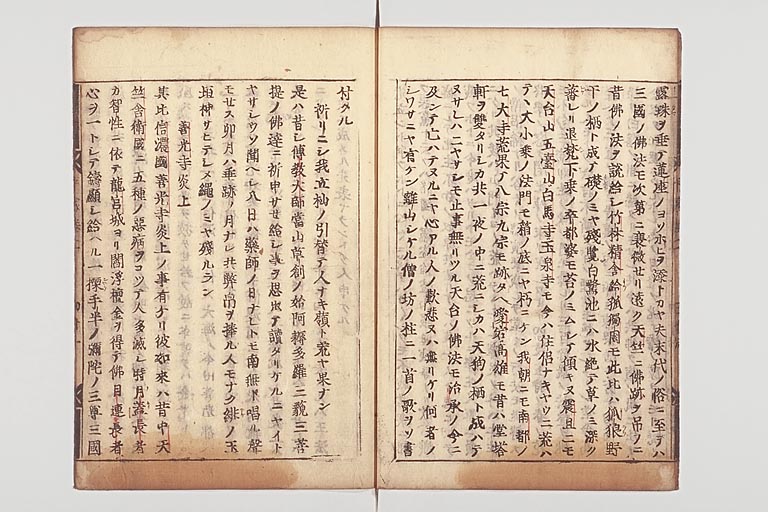 露珠ヲ垂テ蓮座ノヨソホヒヲ添トカヤ夫末代ノ俗ニ至テハ
三國ノ佛法モ次第ニ衰微セリ遠ク天竺ニ佛跡ヲ吊ノニ
昔佛ノ法ヲ説給シ竹林精舎給孤獨園モ此比ハ狐狼野
干ノ栖ト成テ礎ノミヤ残覽白鷺池ニハ水絶テ草ノミ深ク
蕃レリ退梵下乗ノ卒都婆モ苔ノミムシテ傾キヌ震旦ニモ
天台山五臺山白馬寺玉泉寺モ今ハ住侶ナキヤウニ荒ハ
テヽ大小乗ノ法門モ箱ノ底ニヤ朽ニケン我朝ニモ南都ノ
七大寺荒果テ八宗九宗モ跡タヘ愛宕高雄モ昔ハ堂塔
軒ヲ雙タリシカ共一夜ノ中ニ荒ニシカハ天狗ノ栖ト成ハテ
ヌサレハニヤサシモ止事無リツル天台ノ佛法モ治承ノ今ニ
及ンテ亡ハテヌルニヤ心アル人ノ歎悲ヌハ無リケリ何者ノ
シワサニヤ有ケン離山シケル僧ノ坊ノ柱ニ一首ノ歌ヲソ書
付タル
祈リコシ我立杣ノ引替テ人ナキ嶺ト荒ヤ果ナン
是ハ昔シ傳教大師當山草創ノ始阿耨多羅三藐三菩
提ノ佛達ニ祈申サセ給シ事ヲ思出テ讀タリケルニヤイト
ヤサシウソ聞ヘシ八日ハ藥師ノ日ナレトモ南無ト唱ル聲
モセス卯月ハ垂跡ノ月ナレ共弊帛ヲ捧ル人モナク緋ノ玉
垣神サヒテシメ繩ノミヤ殘ルラン
善光寺炎上
其比信濃國善光寺炎上ノ事有ケリ彼如來ハ昔中天
竺舎衛國ニ五種ノ惡病ヲコツテ人多滅シ時月蓋長者
カ智性ニ依テ龍宮城ヨリ閻浮檀金ヲ得テ佛目連長者
心ヲ一トシテ鑄顯シ給ヘル一搩手半ノ彌陀ノ三尊三國